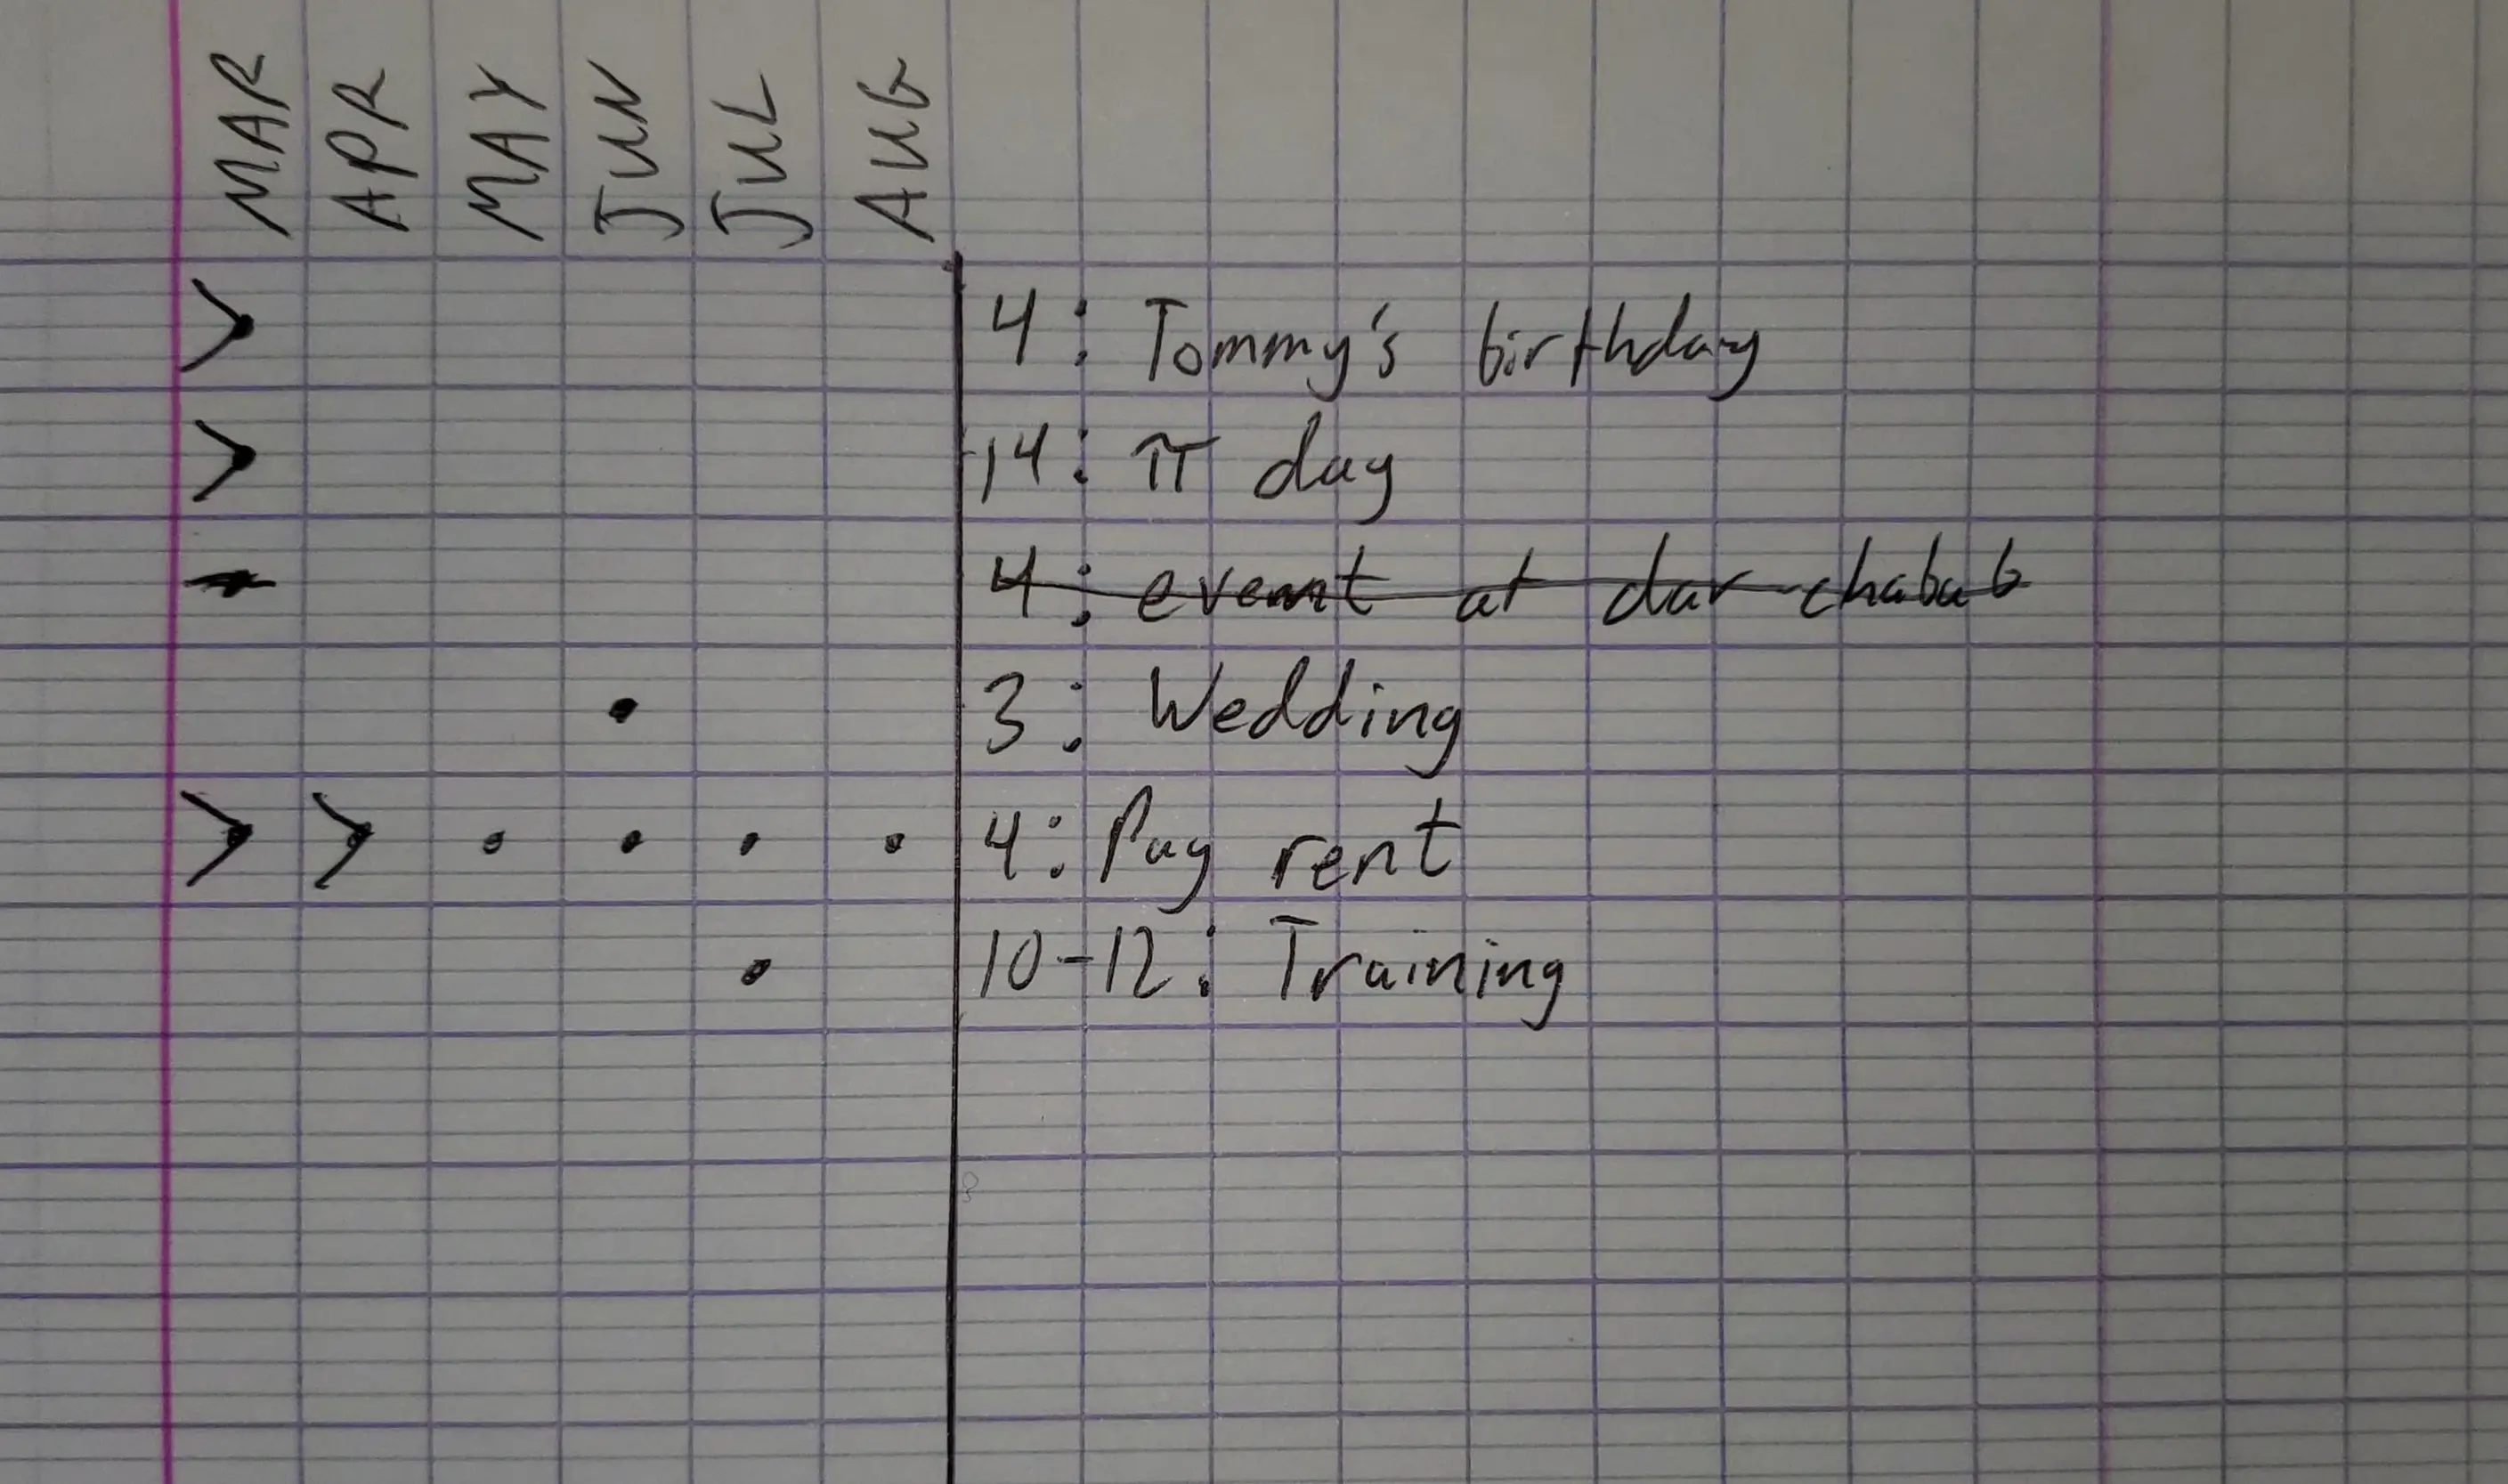 MAR APR MAY JUN JUL AUG
> 4: Tommy's birthday
> 14: π day
4: event at dar chabab
• 3: Wedding
> > • • • • 4: Pay rent
• 10-12: Training